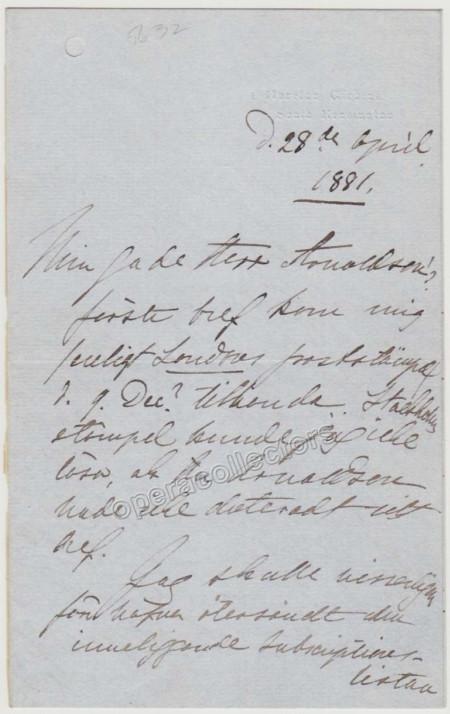 5632
South Kensington
d. 28de April
1881.
Min Gode Herr Arnoldson!
förste bref kom mig
enligt Londons poststämpel
d. 9 Dec? tillhanda. Stockholms
stämpel kunde jag icke
läsa, ok Herr Arnoldson
hade icke dateradt sitt
bref.
Jag skulle visserligen
förr hafva återsändt den
inneliggande subscriptions-
listan
operacollectors